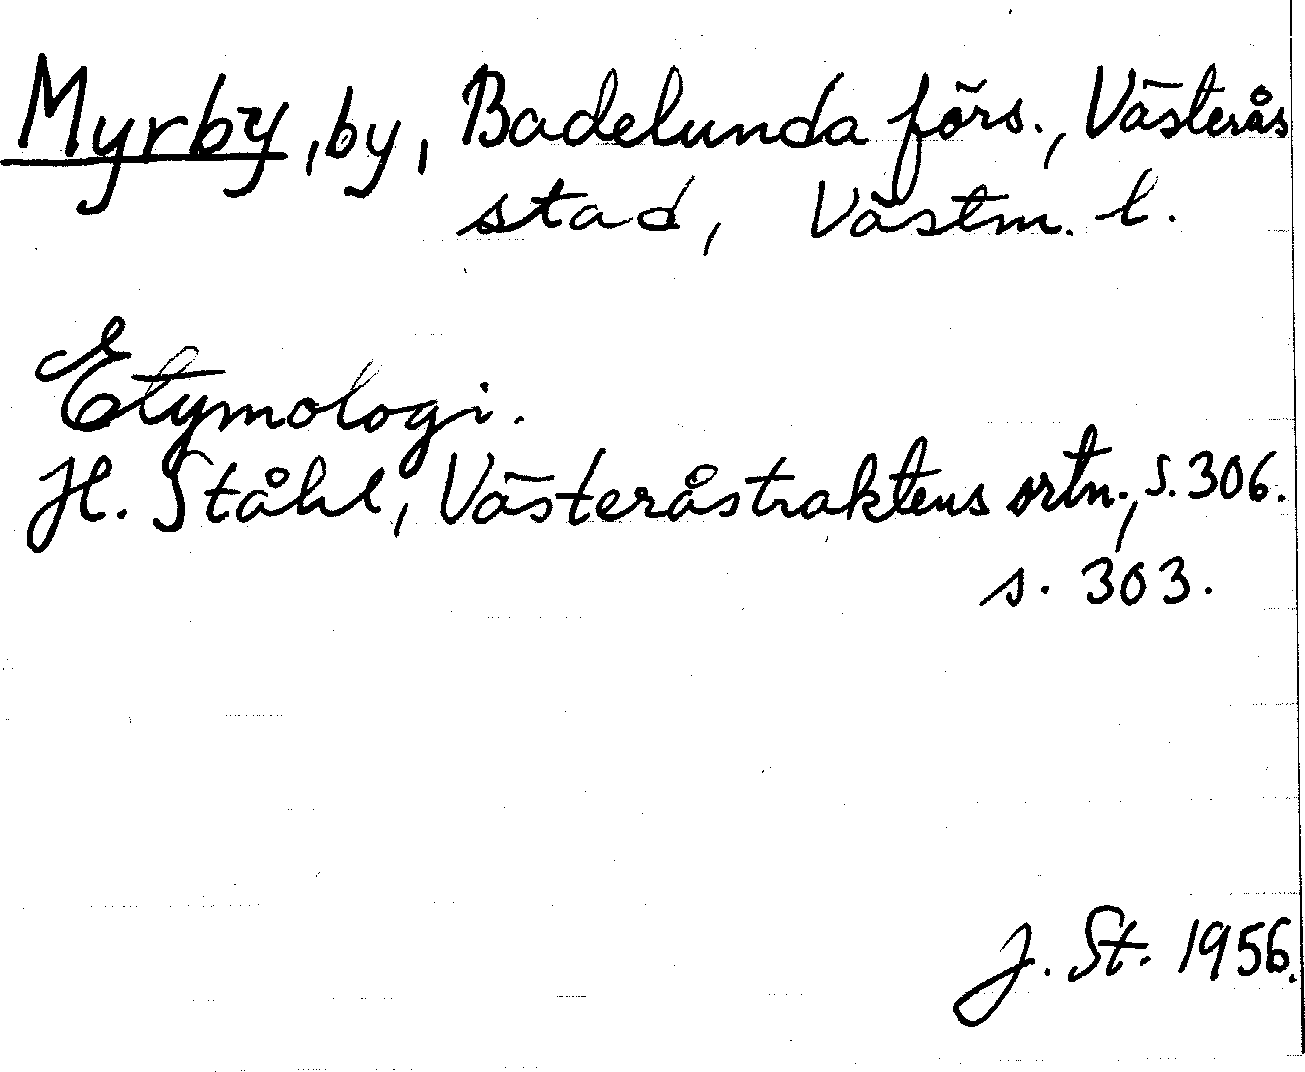 Myrby, by, Badelunda förs., Västerås
stad, Västm. l.
Etymologi.
H. Ståhl, Västeråstraktens ortn., s. 306.
s. 303.
J. St. 1956.